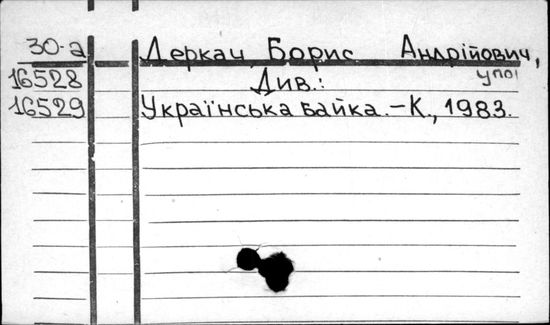 30-а Деркач Борис Андрійович,
упо
16528 Див.:
16529 Українська байка.-К., 1983.